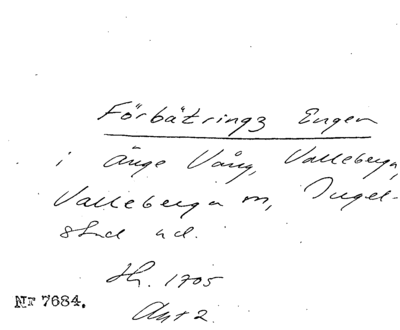 Förbätringz Engen
i Änge Vång, Valleberga,
Valleberga sn, Ingel-
stad hd.
Hr. 1705
Akt 2.
NF 7684.